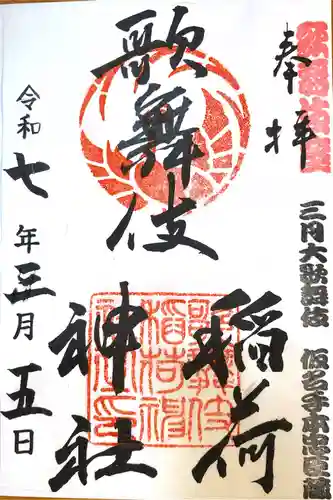 歌舞伎座
奉拝
三月大歌舞伎 仮名手本忠臣蔵
歌舞伎
稲荷
神社
令和七年三月五日